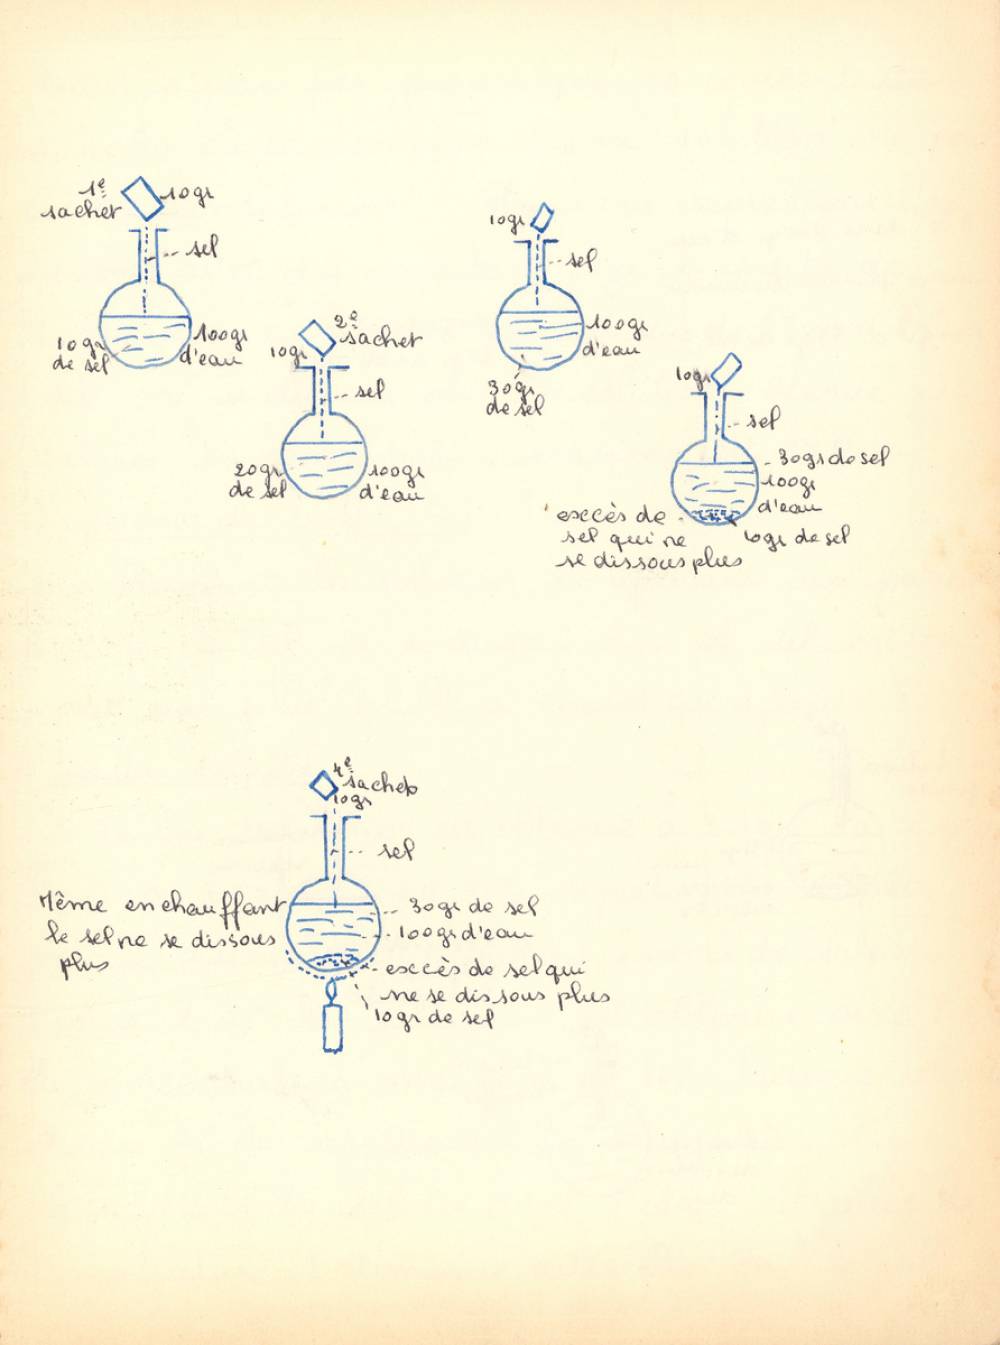 1e
sachet
10gr
sel
10gr
de sel
100gr
d'eau
2e
sachet
10gr
sel
20gr
de sel
100gr
d'eau
10gr
sel
100gr
d'eau
30gr
de sel
10gr
sel
30gr de sel
100gr
d'eau
10gr de sel
exccès de
sel qui ne
se dissous plus
4e
sachet
10gr
sel
Même en chauffant
le sel ne se dissous
plus
30gr de sel
100gr d'eau
exccès de sel qui
ne se dissous plus
10gr de sel